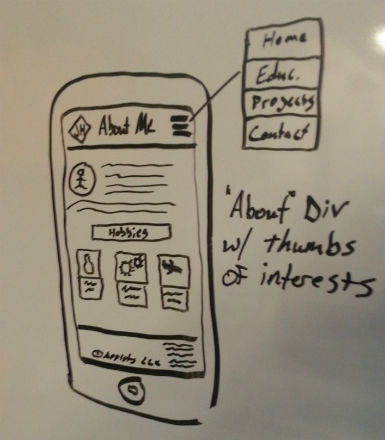 Home
Educ.
Projects
Contact
JH
About Me
Hobbies
"About" Div
w/ thumbs
of interests